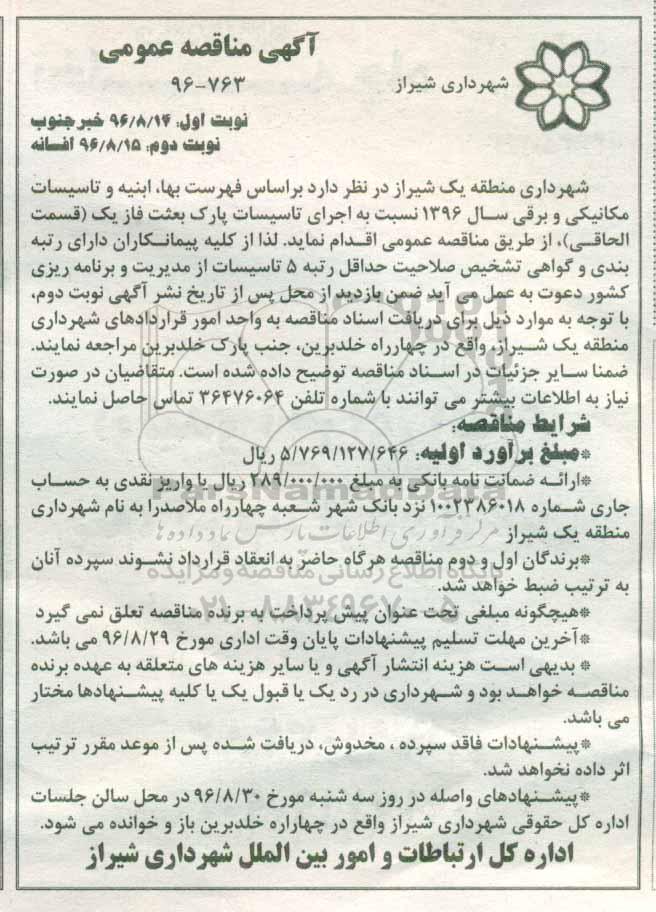 آگهی مناقصه عمومی
۹۶-۷۶۳
شهرداری شیراز
نوبت اول: ۹۶/۸/۱۴ خبر جنوب
نوبت دوم: ۹۶/۸/۱۵ افسانه
شهرداری منطقه یک شیراز در نظر دارد براساس فهرست بها، ابنیه و تاسیسات
مکانیکی و برقی سال ۱۳۹۶ نسبت به اجرای تاسیسات پارک بعثت فاز یک (قسمت
الحاقی)، از طریق مناقصه عمومی اقدام نماید. لذا از کلیه پیمانکاران دارای رتبه
بندی و گواهی تشخیص صلاحیت حداقل رتبه ۵ تاسیسات از مدیریت و برنامه ریزی
کشور دعوت به عمل می آید ضمن بازدید از محل پس از تاریخ نشر آگهی نوبت دوم،
با توجه به موارد ذیل برای دریافت اسناد مناقصه به واحد امور قراردادهای شهرداری
منطقه یک شیراز، واقع در چهارراه خلدبرین، جنب پارک خلدبرین مراجعه نمایند.
ضمنا سایر جزئیات در اسناد مناقصه توضیح داده شده است. متقاضیان در صورت
نیاز به اطلاعات بیشتر می توانند با شماره تلفن ۳۶۴۷۶۰۶۴ تماس حاصل نمایند.
شرایط مناقصه:
*مبلغ برآورد اولیه: ۵/۷۶۹/۱۲۷/۶۴۶ ریال
*ارائه ضمانت نامه بانکی به مبلغ ۲۸۹/۰۰۰/۰۰۰ ریال یا واریز نقدی به حساب
جاری شماره ۱۰۰۲۳۸۶۰۱۸ نزد بانک شهر شعبه چهارراه ملاصدرا به نام شهرداری
منطقه یک شیراز
*برندگان اول و دوم مناقصه هرگاه حاضر به انعقاد قرارداد نشوند سپرده آنان
به ترتیب ضبط خواهد شد.
*هیچگونه مبلغی تحت عنوان پیش پرداخت به برنده مناقصه تعلق نمی گیرد
*آخرین مهلت تسلیم پیشنهادات پایان وقت اداری مورخ ۹۶/۸/۲۹ می باشد.
* بدیهی است هزینه انتشار آگهی و یا سایر هزینه های متعلقه به عهده برنده
مناقصه خواهد بود و شهرداری در رد یک یا قبول یک یا کلیه پیشنهادها مختار
می باشد.
*پیشنهادات فاقد سپرده ، مخدوش، دریافت شده پس از موعد مقرر ترتیب
اثر داده نخواهد شد.
*پیشنهادهای واصله در روز سه شنبه مورخ ۹۶/۸/۳۰ در محل سالن جلسات
اداره کل حقوقی شهرداری شیراز واقع در چهاراره خلدبرین باز و خوانده می شود.
اداره کل ارتباطات و امور بین الملل شهرداری شیراز
ParsNamadData
مرکز فرآوری اطلاعات پارس نماد داده ها
پایگاه اطلاع رسانی مناقصه و مزایده
۰۲۱-۸۸۳۴۹۶۷۰-۵